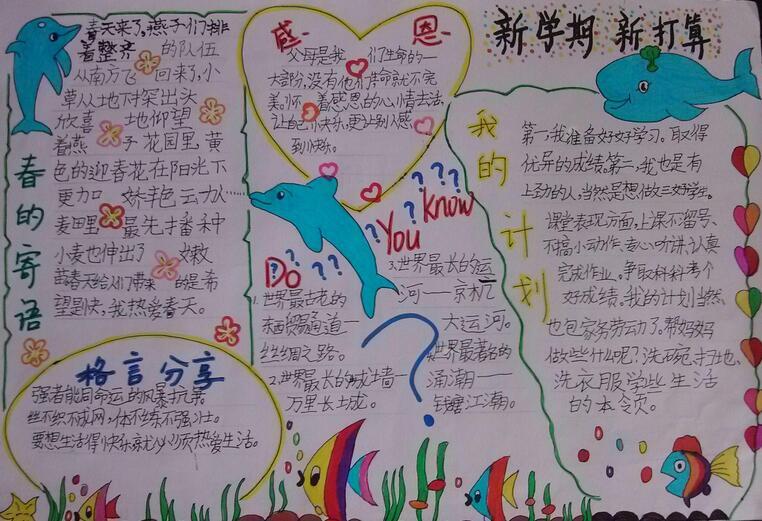 春的寄语
春天来了。燕子们排
着整齐的队伍
从南方飞回来了,小
草从地下探出头
欣喜地仰望
着燕子花园里,黄
色的迎春花在阳光下
更加娇丰色云力人……
麦田里最先播种
小麦也伸出了嫩
苗春天给们带来的是希
望是快,我热爱春天。
格言分享
强者能同命运的风暴抗争
丝不织不成网,体不练不强壮。
要想生活得快乐就必须热爱生活。
感恩
父母是我们生命的一
大部分,没有他们生命就不完
美,怀着感恩的心情去活,
让自己快乐,更让别人感
到快乐。
Do You Know
? ? ? ? ? ? ? ? ?
1.世界最古老的
东西贸易通道—
丝绸之路。
2.世界最长的城墙—
万里长城。
3.世界最长的运
河——京杭
大运河。
世界最著的
涌潮——
钱塘江潮。
新学期 新打算
我的计划
第一,我准备好好学习。取得
优异的成绩。第二,我也是有
上劲的人,当然是想做三好学生。
课堂表现方面,上课不留号、
不搞小动作,专心听讲,认真
完成作业。争取科科考个
好成绩。我的计划当然,
也包家务劳动了。帮妈妈
做些什么呢?洗碗、扫地、
洗衣服学些生活
的本领。